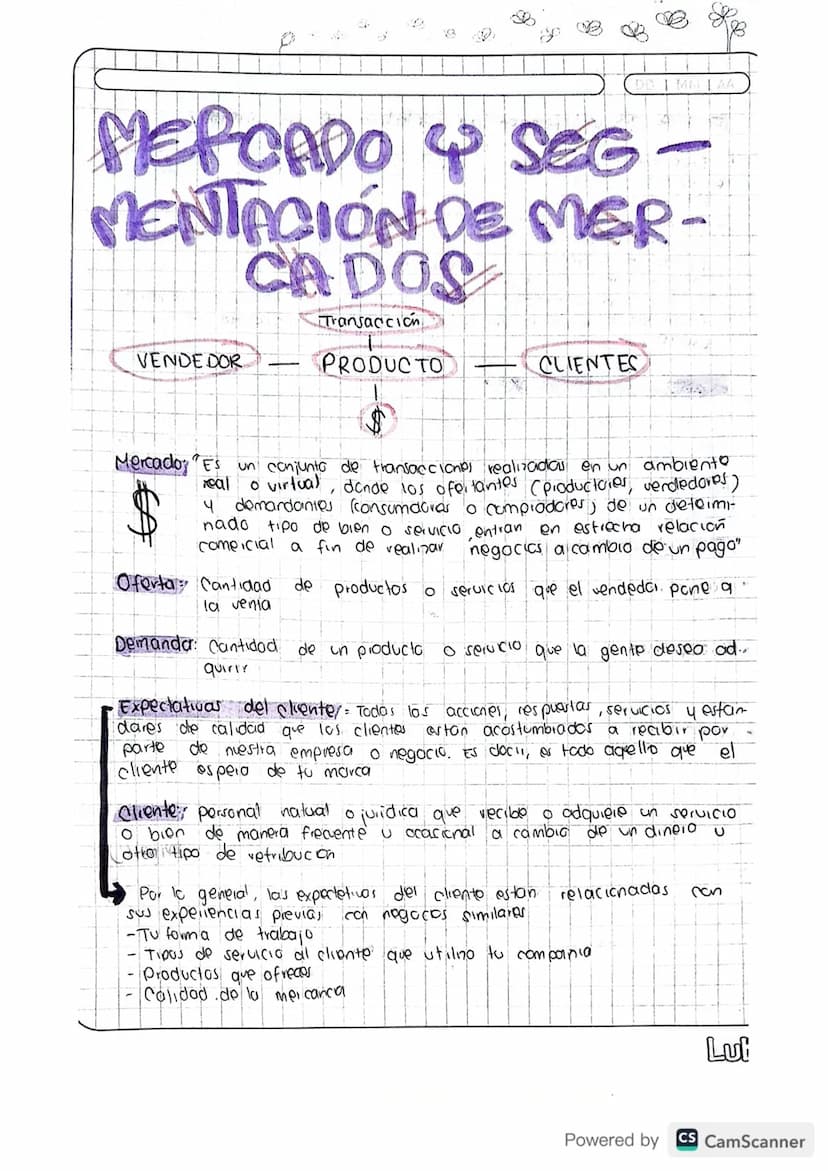 DD | MM | AA
MERCADO Y SEG-
MENTACIÓN DE MER-
CADOS
Transacción
VENDEDOR — PRODUCTO — CLIENTES
$
Mercado: "Es un conjunto de transacciones realizadas en un ambiente
real o virtual, donde los ofertantes (productores, vendedores)
$
y demandantes (consumadoras o compradores) de un determi-
nado tipo de bien o servicio, entran en estrecha relación
comercial a fin de realizar negocios a cambio de un pago"
Oferta: Cantidad de productos o servicios que el vendedor pone a
la venta
Demanda: Cantidad de un producto o servicio que la gente desea ad-
quirir
Expectativas del cliente: Todas las acciones, respuestas, servicios y estan-
dares de calidad que los clientes están acostumbrados a recibir por
parte de nuestra empresa o negocio. Es decir, es todo aquello que el
cliente espera de tu marca
Cliente: personal natual o juridica que recibe o adquiere un servicio
o bien de manera frecuente u ocacional a cambio de un dinero u
otro tipo de retribución
Por lo general, las expectetivas del cliente estan relacionadas con
sus experiencias previas con negocos similares
- Tu forma de trabajo
- Tipos de servicio al cliente que utilizo tu compania
- Productos que ofreces
- Calidad de la mercanca
Lub
Powered by CS CamScanner